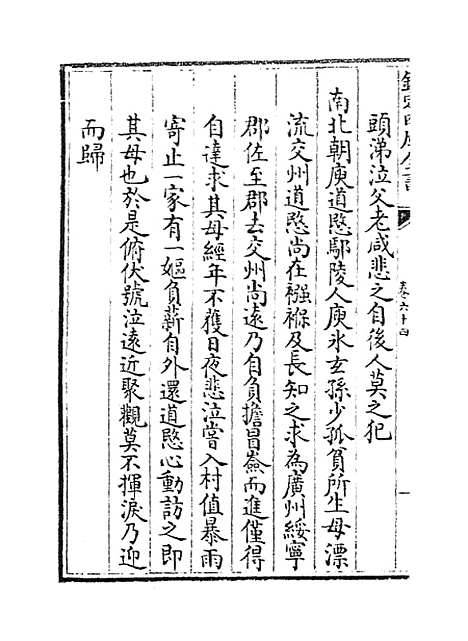 欽定四庫全書
卷六十四
頭涕泣父老咸悲之自後人莫之犯
南北朝庾道愍鄢陵人庾氷玄孫少孤貧所生母漂
流交州道愍尚在襁褓及長知之求為廣州綏寧
郡佐至郡去交州尚遠乃自負擔冒嶮而進僅得
自達求其母經年不獲日夜悲泣嘗入村值暴雨
寄止一家有一嫗負薪自外還道愍心動訪之即
其母也於是俯伏號泣遠近聚觀莫不揮淚乃迎
而歸